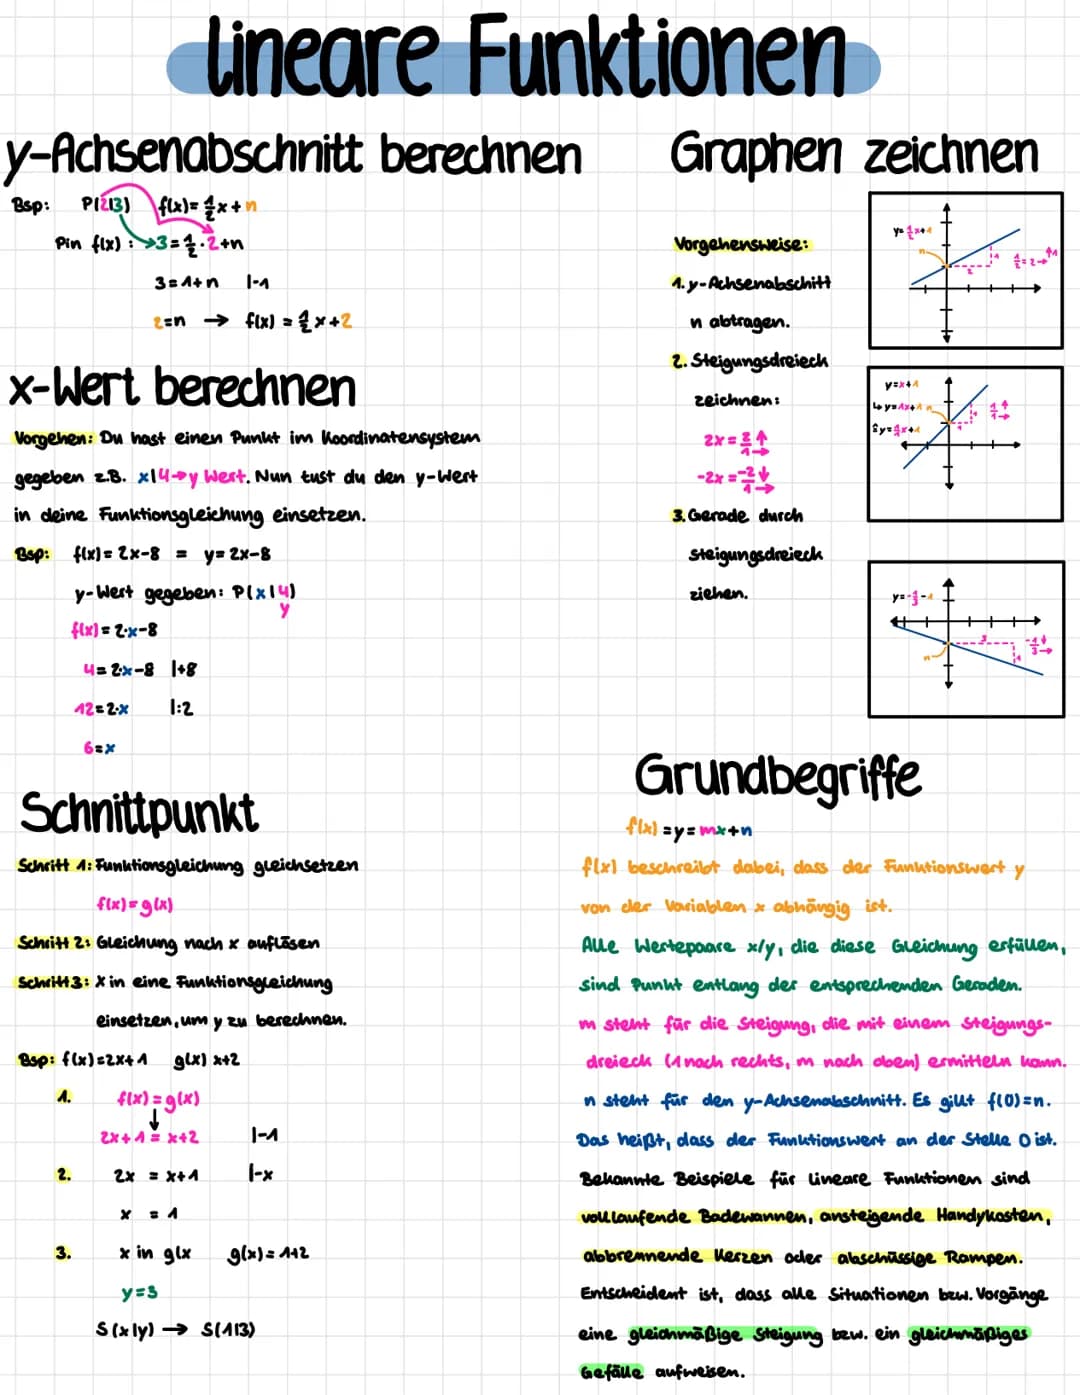 lineare Funktionen
y-Achsenabschnitt berechnen
Bsp: P(2|3) f(x)= 1/2 x + n
P in f(x) : → 3 = 1/2 · 2 + n
3 = 1 + n |-1
2 = n → f(x) = 1/2 x + 2
x-Wert berechnen
Vorgehen: Du hast einen Punkt im Koordinatensystem
gegeben z.B. x|4 → y Wert. Nun tust du den y-Wert
in deine Funktionsgleichung einsetzen.
Bsp: f(x) = 2x-8 = y = 2x-8
y-Wert gegeben: P(x|4)
y
f(x) = 2·x-8
4 = 2·x-8 |+8
12 = 2·x |:2
6 = x
Schnittpunkt
Schritt 1: Funktionsgleichung gleichsetzen
f(x) = g(x)
Schritt 2: Gleichung nach x auflösen
Schritt 3: x in eine Funktionsgleichung
einsetzen, um y zu berechnen.
Bsp: f(x) = 2x+1 g(x) x+2
1. f(x) = g(x)
↓
2x+1 = x+2 |-1
2. 2x = x+1 |-x
x = 1
3. x in g(x g(x) = 1+2
y = 3
S(x|y) → S(1|3)
Graphen zeichnen
Vorgehensweise:
1. y-Achsenabschitt
n abtragen.
2. Steigungsdreieck
zeichnen:
2x = 2/1 ↑→
-2x = -2/1 ↓→
3. Gerade durch
Steigungsdreieck
ziehen.
y = 1/2 x + 1
n
1
2
1/2 = 2→ ↑1
y = x + 1
↳ y = 1x + 1 n
≙ y = 1/1 x + 1
1
1
1/1 ↑→
y = -1/3 - 1
3
n
1
-1/3 ↓→
Grundbegriffe
f(x) = y = mx + n
f(x) beschreibt dabei, dass der Funktionswert y
von der Variablen x abhängig ist.
Alle Wertepaare x/y, die diese Gleichung erfüllen,
sind Punkt entlang der entsprechenden Geraden.
m steht für die Steigung, die mit einem Steigungs-
dreieck (1 nach rechts, m nach oben) ermitteln kann.
n steht für den y-Achsenabschnitt. Es gilt f(0)=n.
Das heißt, dass der Funktionswert an der Stelle 0 ist.
Bekannte Beispiele für lineare Funktionen sind
volllaufende Badewannen, ansteigende Handykosten,
abbrennende Kerzen oder abschüssige Rampen.
Entscheident ist, dass alle Situationen bzw. Vorgänge
eine gleichmäßige Steigung bzw. ein gleichmäßiges
Gefälle aufweisen.